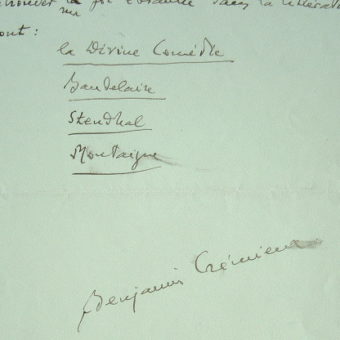 la foi dans la littérat
ont :
la Divine Comédie
Baudelaire
Stendhal
Montaigne
Benjamin Crémieux